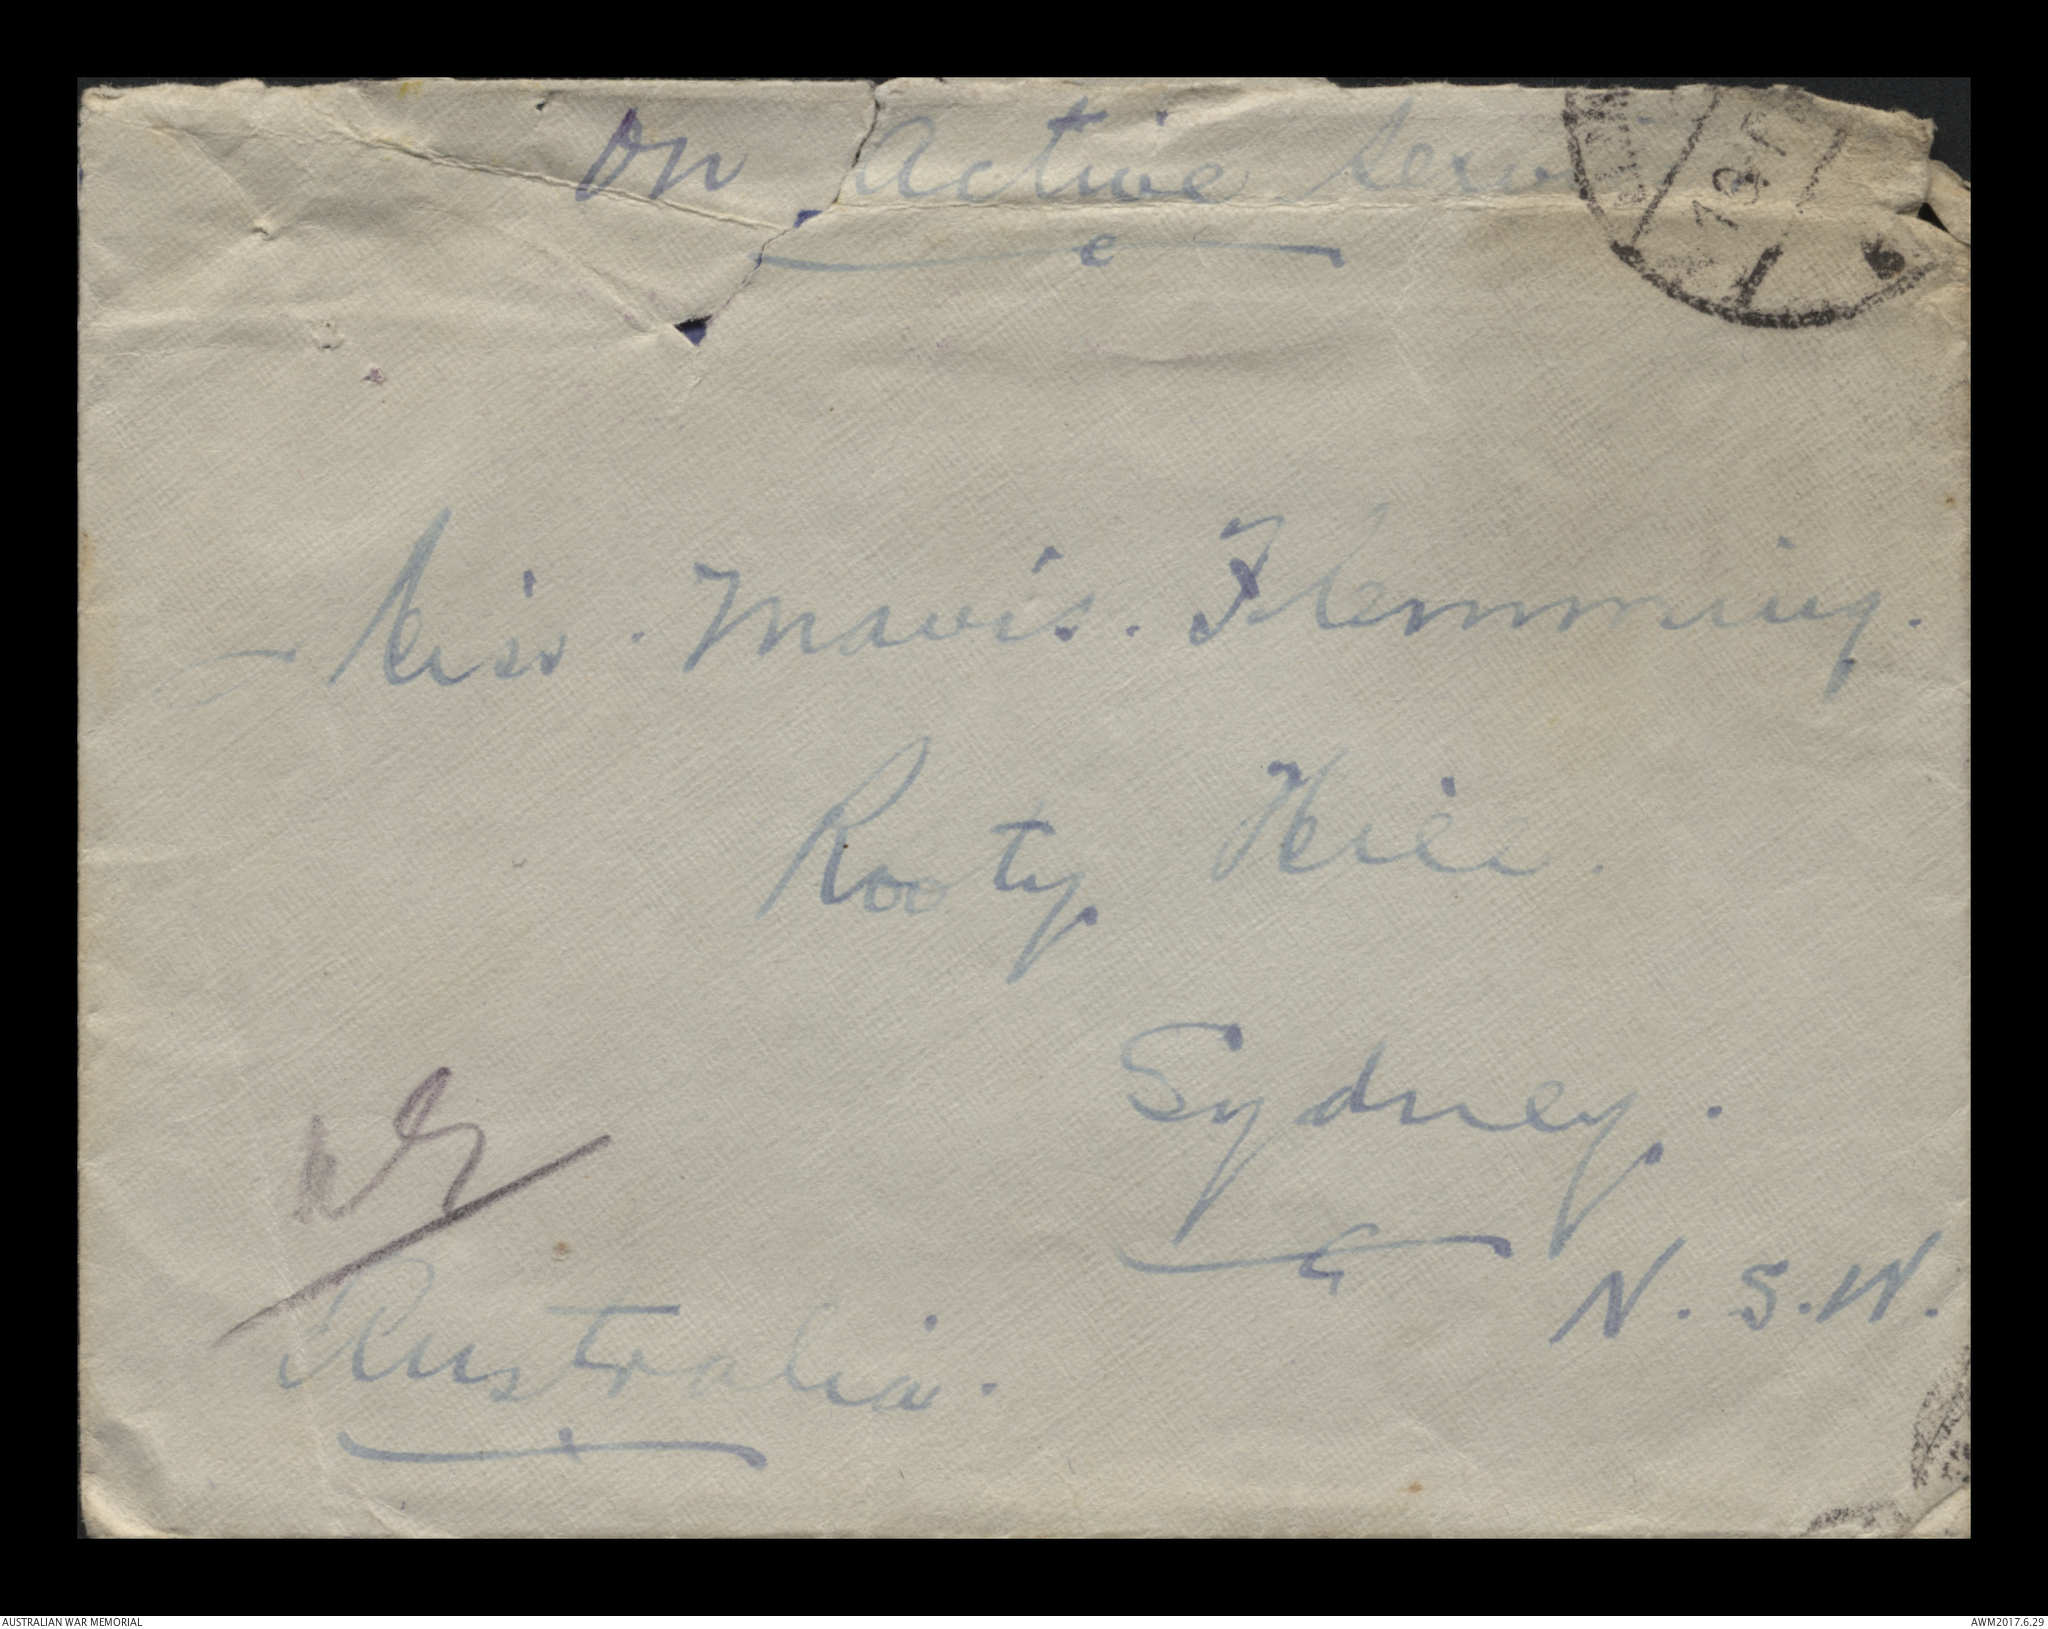 On Active Servi
Miss. Mavis. Flemming.
Rooty Hill.
Sydney.
N.S.W.
Australia.
AUSTRALIAN WAR MEMORIAL
AWM2017.6.29